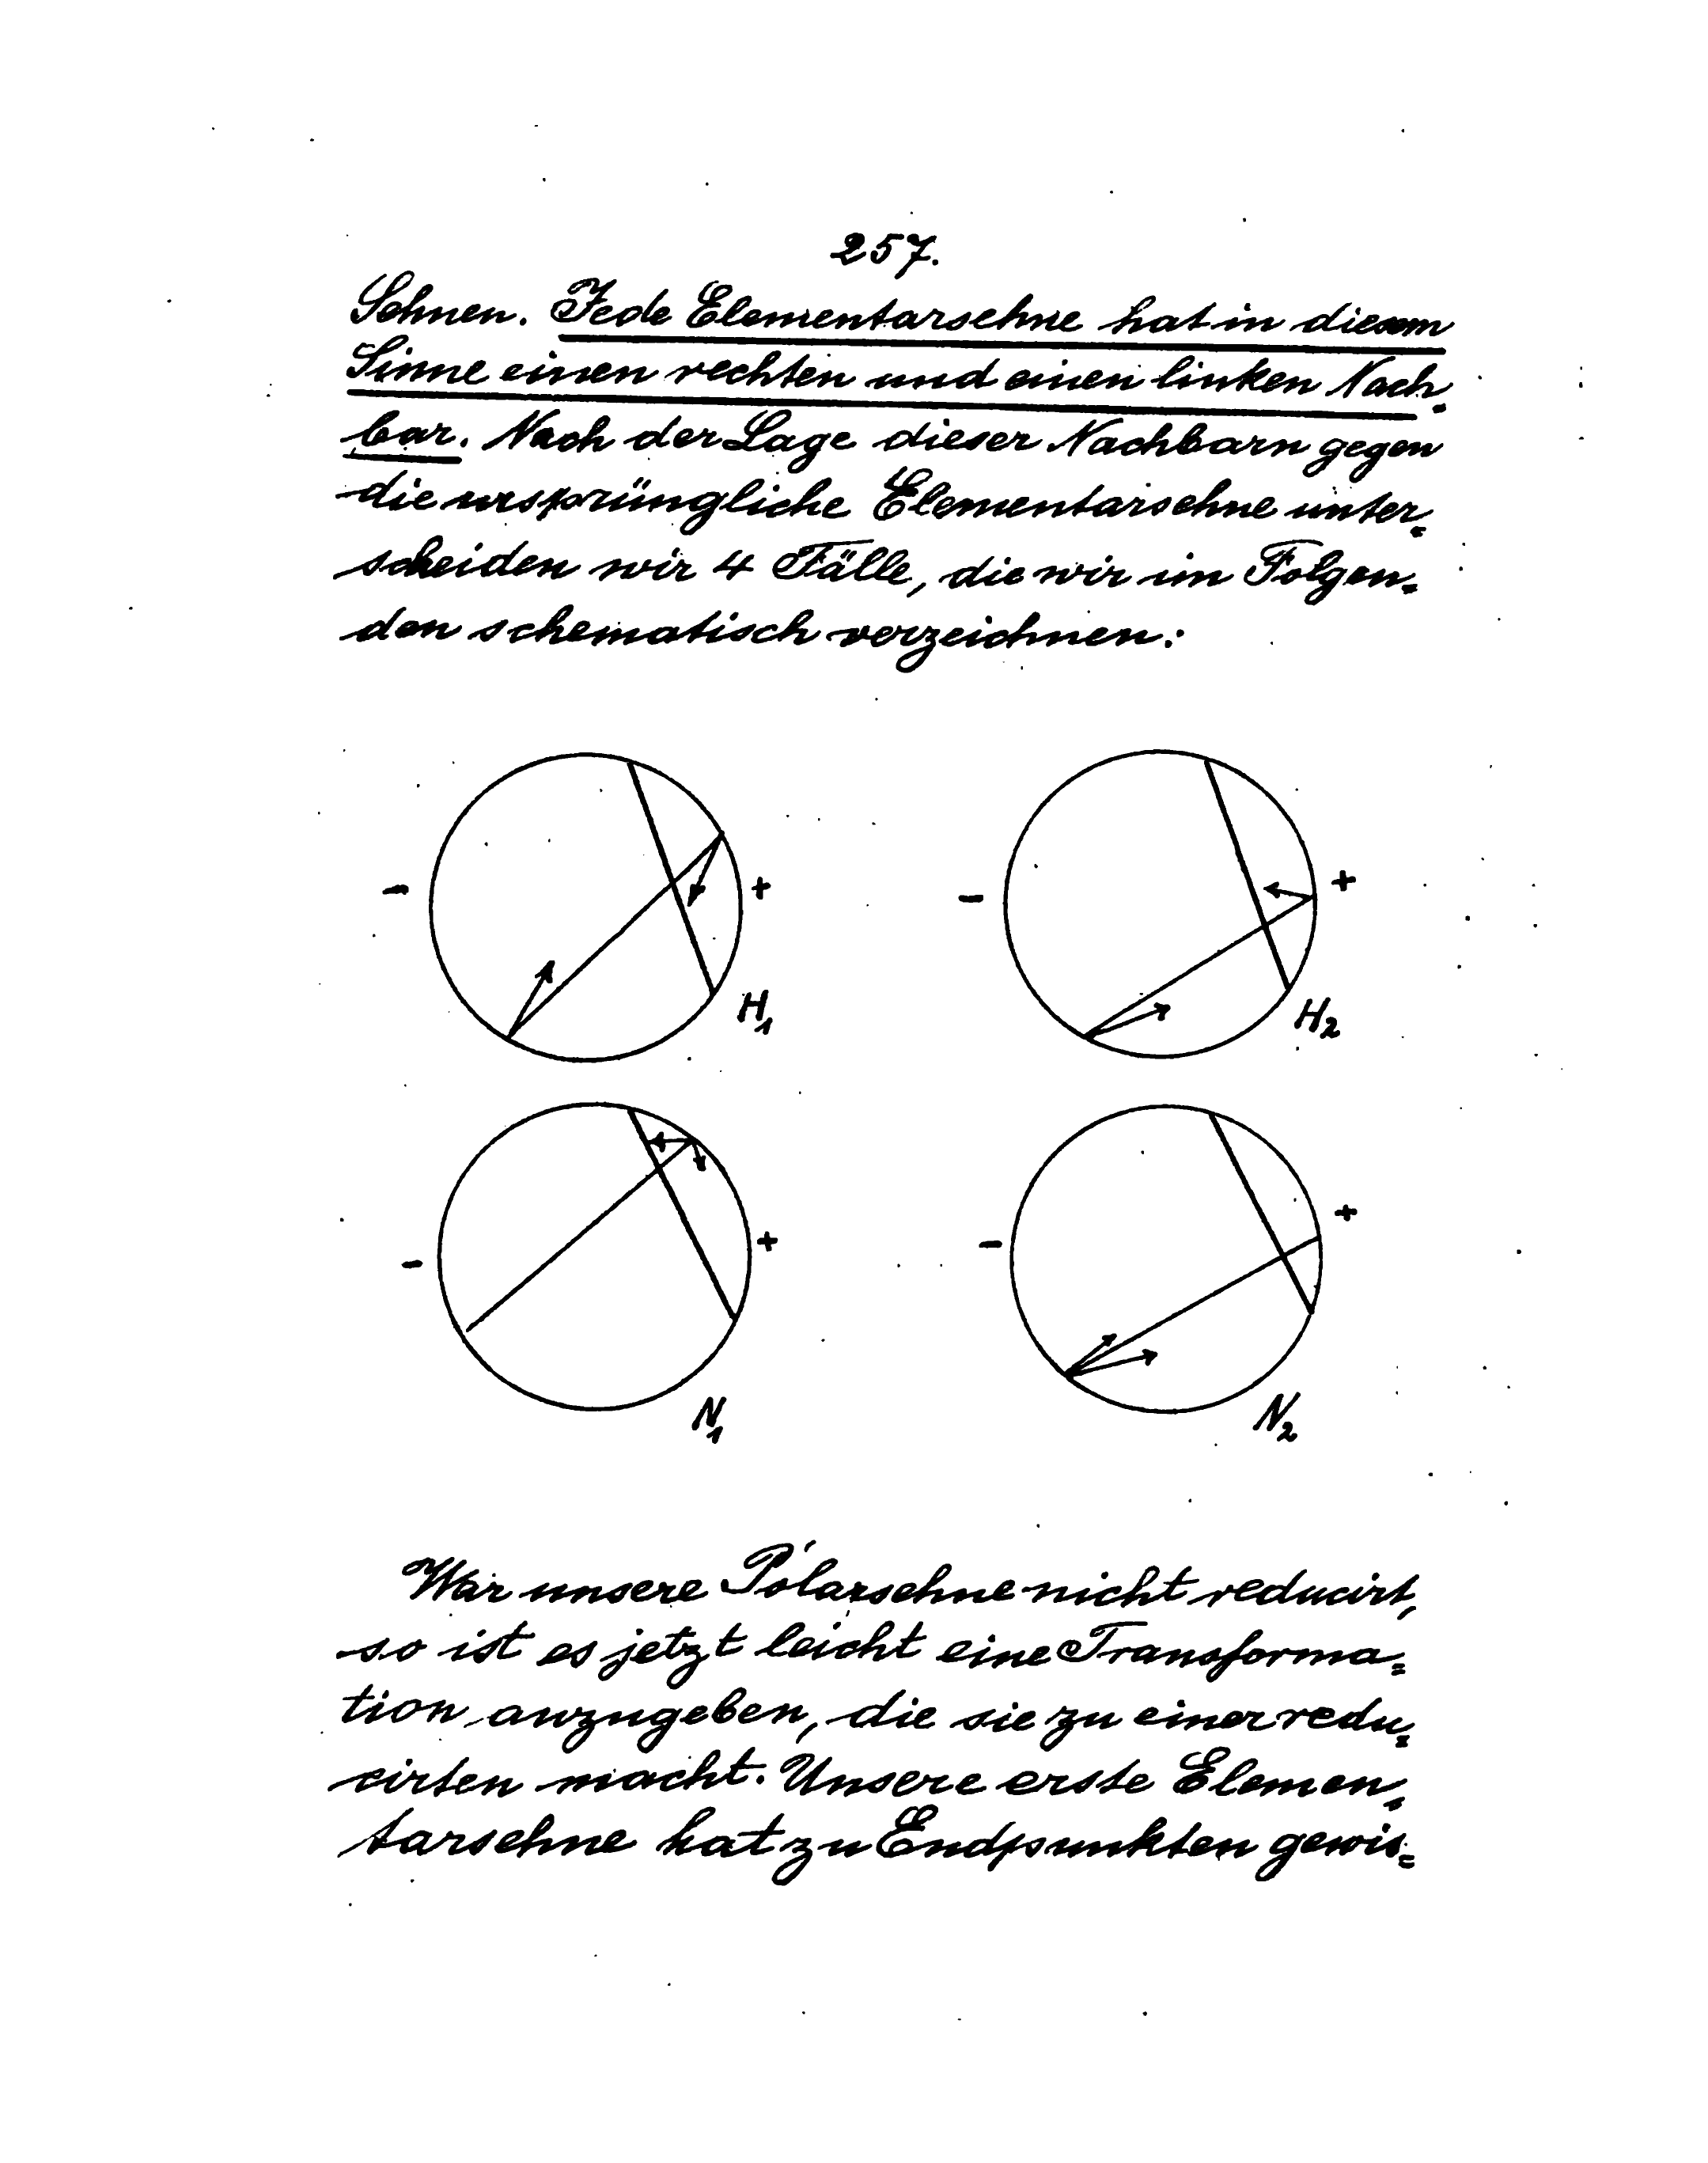 257.
Sehnen. Jede Elementarsehne hat in diesem
Sinne einen rechten und einen linken Nach-
bar. Nach der Lage dieser Nachbarn gegen
die ursprüngliche Elementarsehne unter-
scheiden wir 4 Fälle, die wir im Folgen-
den schematisch verzeichnen:
- + H1 - + H2
- + N1 - + N2
War unsere Polarsehne nicht reducirt,
so ist es jetzt leicht eine Transforma-
tion anzugeben, die sie zu einer redu-
cirten macht. Unsere erste Elemen-
tarsehne hat zu Endpunkten gewis-